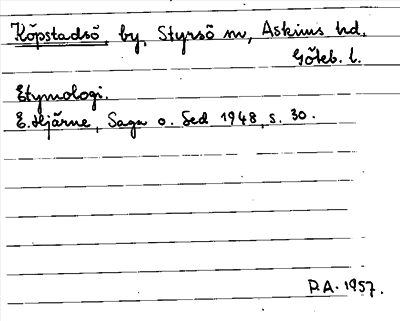 Köpstadsö by, Styrsö sn, Askims hd,
Göteb. l.
Etymologi.
E. Hjärne, Saga o. Sed 1948, s. 30.
P.A. 1957.